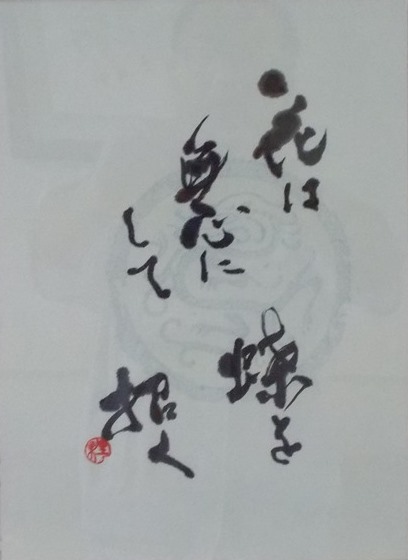 花は
無心に
して
蝶を
招く